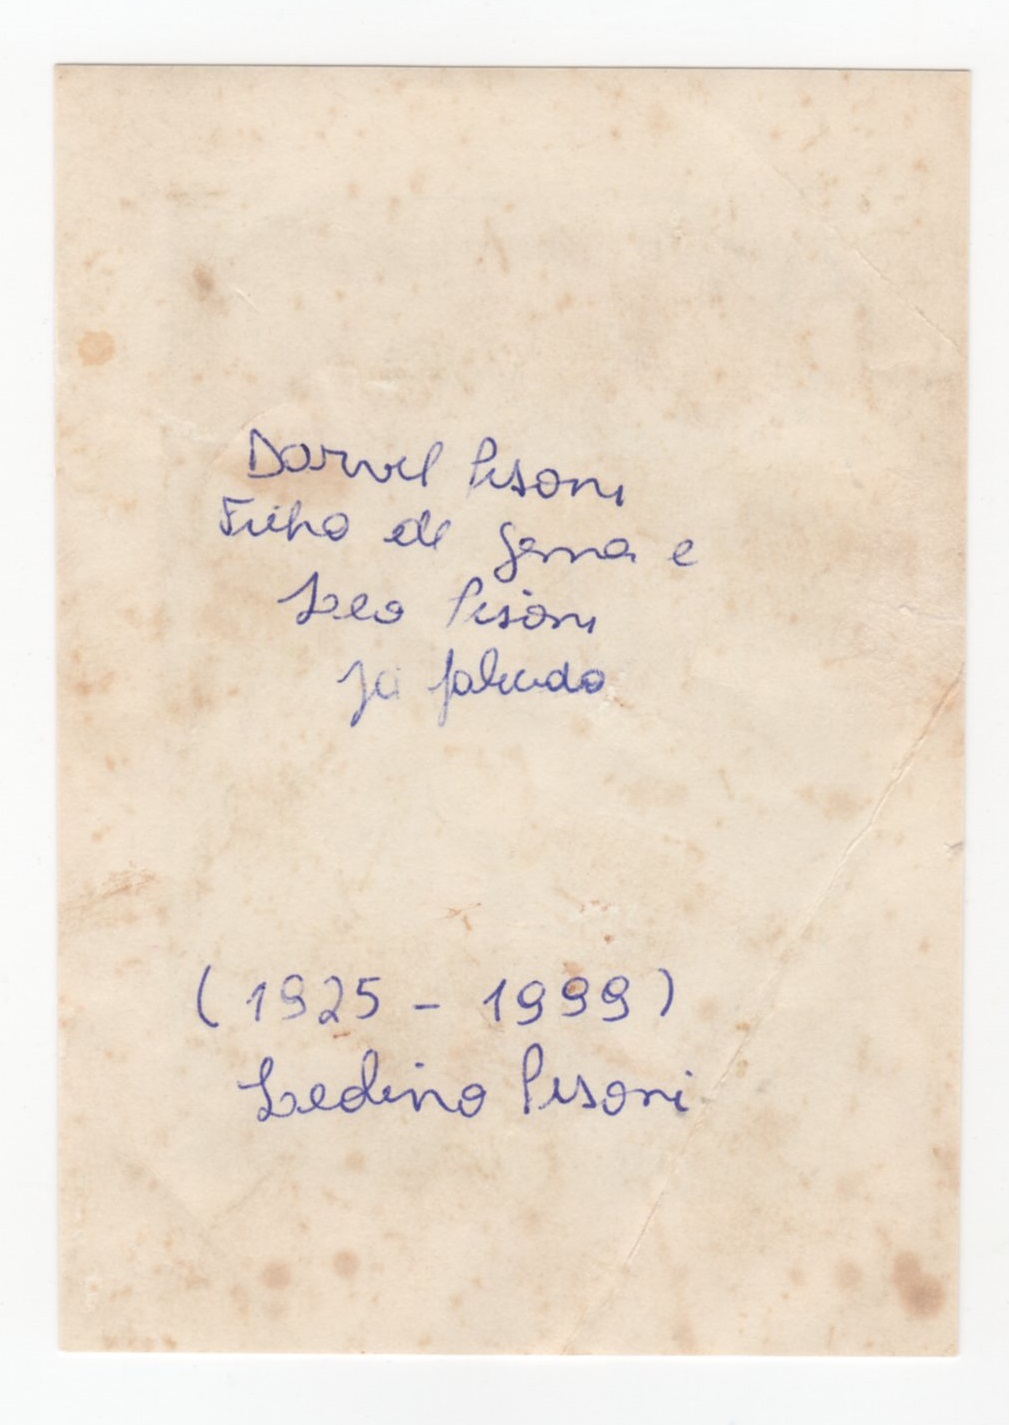 Darvel Pisoni
Filho de Gema e
Leo Pisoni
Já falecido
(1925 - 1999)
Ledino Pisoni